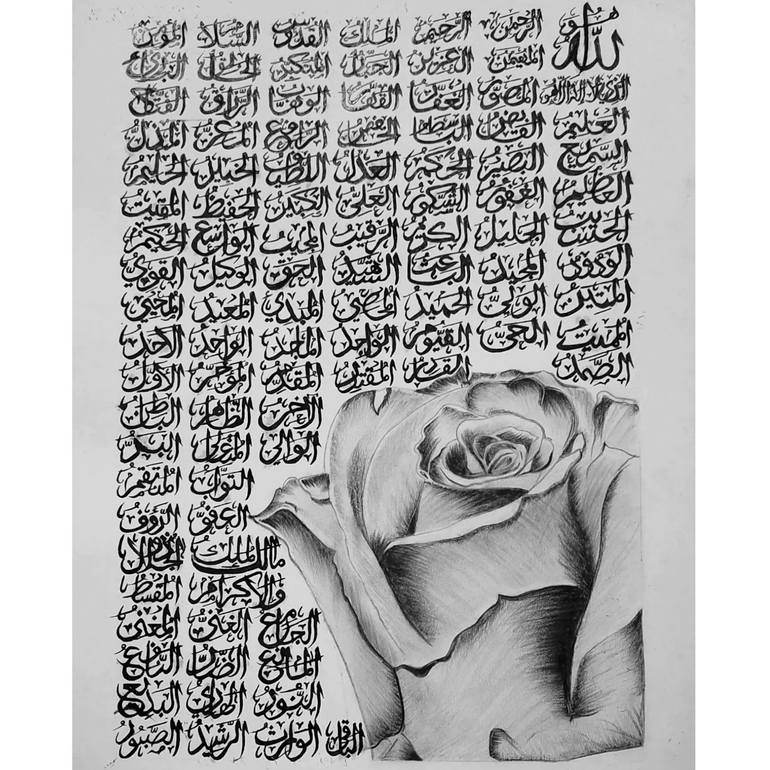 هو الله الرحمن الرحيم الملك القدوس السلام المؤمن
المهيمن العزيز الجبار المتكبر الخالق البارئ
الذي لا إله إلا هو المصور الغفار القهار الوهاب الرزاق الفتاح
العليم القابض الباسط الخافض الرافع المعز المذل
السميع البصير الحكم العدل اللطيف الخبير الحليم
العظيم الغفور الشكور العلي الكبير الحفيظ المقيت
الحسيب الجليل الكريم الرقيب المجيب الواسع الحكيم
الودود المجيد الباعث الشهيد الحق الوكيل القوي
المتين الولي الحميد المحصي المبدي المعيد المحيي
المميت الحي القيوم الواجد الماجد الواحد الأحد
الصمد القادر المقتدر المقدم المؤخر الأول
الآخر الظاهر الباطن
الوالي المتعالي البر
التواب المنتقم
العفو الرؤوف
مالك الملك الجلال
والإكرام المقسط
الجامع الغني المغني
المانع الضار النافع
النور الهادي البديع
الباقي الوارث الرشيد الصبور